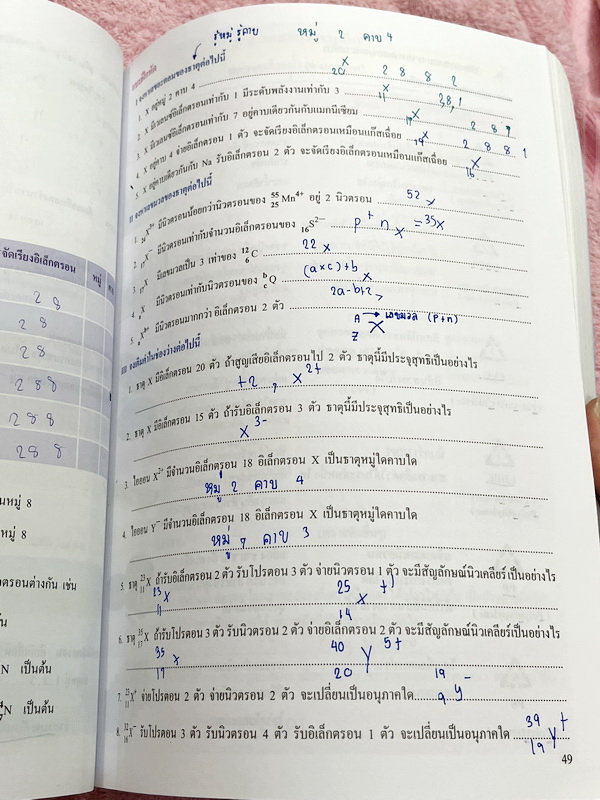 รู้หมู่ รู้คาบ หมู่ 2 คาบ 4
แบบฝึกหัด
I จงหาเลขอะตอมของธาตุต่อไปนี้
1. X อยู่หมู่ 2 คาบ 4 20 X 2 8 8 2
2. X มีเวเลนซ์อิเล็กตรอนเท่ากับ 1 มีระดับพลังงานเท่ากับ 3 11 X 2 8 1
3. X มีเวเลนซ์อิเล็กตรอนเท่ากับ 7 อยู่คาบเดียวกันกับแมกนีเซียม 17 X 2 8 7
4. X อยู่คาบ 4 จ่ายอิเล็กตรอน 1 ตัว จะจัดเรียงอิเล็กตรอนเหมือนแก๊สเฉื่อย 19 X 2 8 8 1
5. X อยู่คาบเดียวกันกับ Na รับอิเล็กตรอน 2 ตัว จะจัดเรียงอิเล็กตรอนเหมือนแก๊สเฉื่อย 16 X
II จงหาเลขมวลของธาตุต่อไปนี้
1. 24X3+ มีนิวตรอนน้อยกว่านิวตรอนของ 55 25 Mn4+ อยู่ 2 นิวตรอน 52 X
2. 17X− มีนิวตรอนเท่ากับจำนวนอิเล็กตรอนของ 16S2− p + n X = 35X
3. 17X มีเลขมวลเป็น 3 เท่าของ 12 6 C
4. X มีนิวตรอนเท่ากับนิวตรอนของ b c Q 22 X
(a×c)+b X
มีนิวตรอนมากกว่า อิเล็กตรอน 2 ตัว 2a-b+2
A → เลขมวล (p+n)
Z X
III จงเติมคำในช่องว่างต่อไปนี้
1. ธาตุ X มีอิเล็กตรอน 20 ตัว ถ้าสูญเสียอิเล็กตรอนไป 2 ตัว ธาตุนี้มีประจุสุทธิเป็นอย่างไร
+2 , X2+
2. ธาตุ X มีอิเล็กตรอน 15 ตัว ถ้ารับอิเล็กตรอน 3 ตัว ธาตุนี้มีประจุสุทธิเป็นอย่างไร
X3-
3. ไอออน X2+ มีจำนวนอิเล็กตรอน 18 อิเล็กตรอน X เป็นธาตุหมู่ใดคาบใด
หมู่ 2 คาบ 4
4. ไอออน Y− มีจำนวนอิเล็กตรอน 18 อิเล็กตรอน X เป็นธาตุหมู่ใดคาบใด
หมู่ 7 คาบ 3
5. ธาตุ 23 11 X ถ้ารับอิเล็กตรอน 2 ตัว รับโปรตอน 3 ตัว จ่ายนิวตรอน 1 ตัว จะมีสัญลักษณ์นิวเคลียร์เป็นอย่างไร
23 11 X 25 14 X +1
6. ธาตุ 35 17 X ถ้ารับโปรตอน 3 ตัว รับนิวตรอน 2 ตัว จ่ายอิเล็กตรอน 2 ตัว จะมีสัญลักษณ์นิวเคลียร์เป็นอย่างไร
35 17 X 40 20 Y 5+
7. 23 11 X+ จ่ายโปรตอน 2 ตัว จ่ายนิวตรอน 2 ตัว จะเปลี่ยนเป็นอนุภาคใด 19 9 Y−
8. 32 16 X− รับโปรตอน 3 ตัว รับนิวตรอน 4 ตัว รับอิเล็กตรอน 1 ตัว จะเปลี่ยนเป็นอนุภาคใด 39 19 Y+
49
จัดเรียงอิเล็กตรอน หมู่
2 8
2 8
2 8
2 8 8
2 8 8
2 8 8
นหมู่ 8
หมู่ 8
ตรอนต่างกัน เช่น
กัน
N เป็นต้น
N เป็นต้น